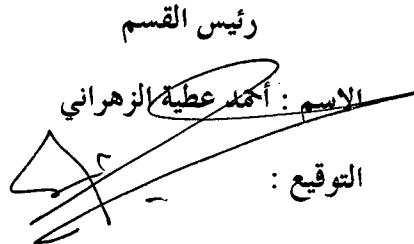 رئيس القسم
الاسم : أحمد عطية الزهراني
التوقيع :